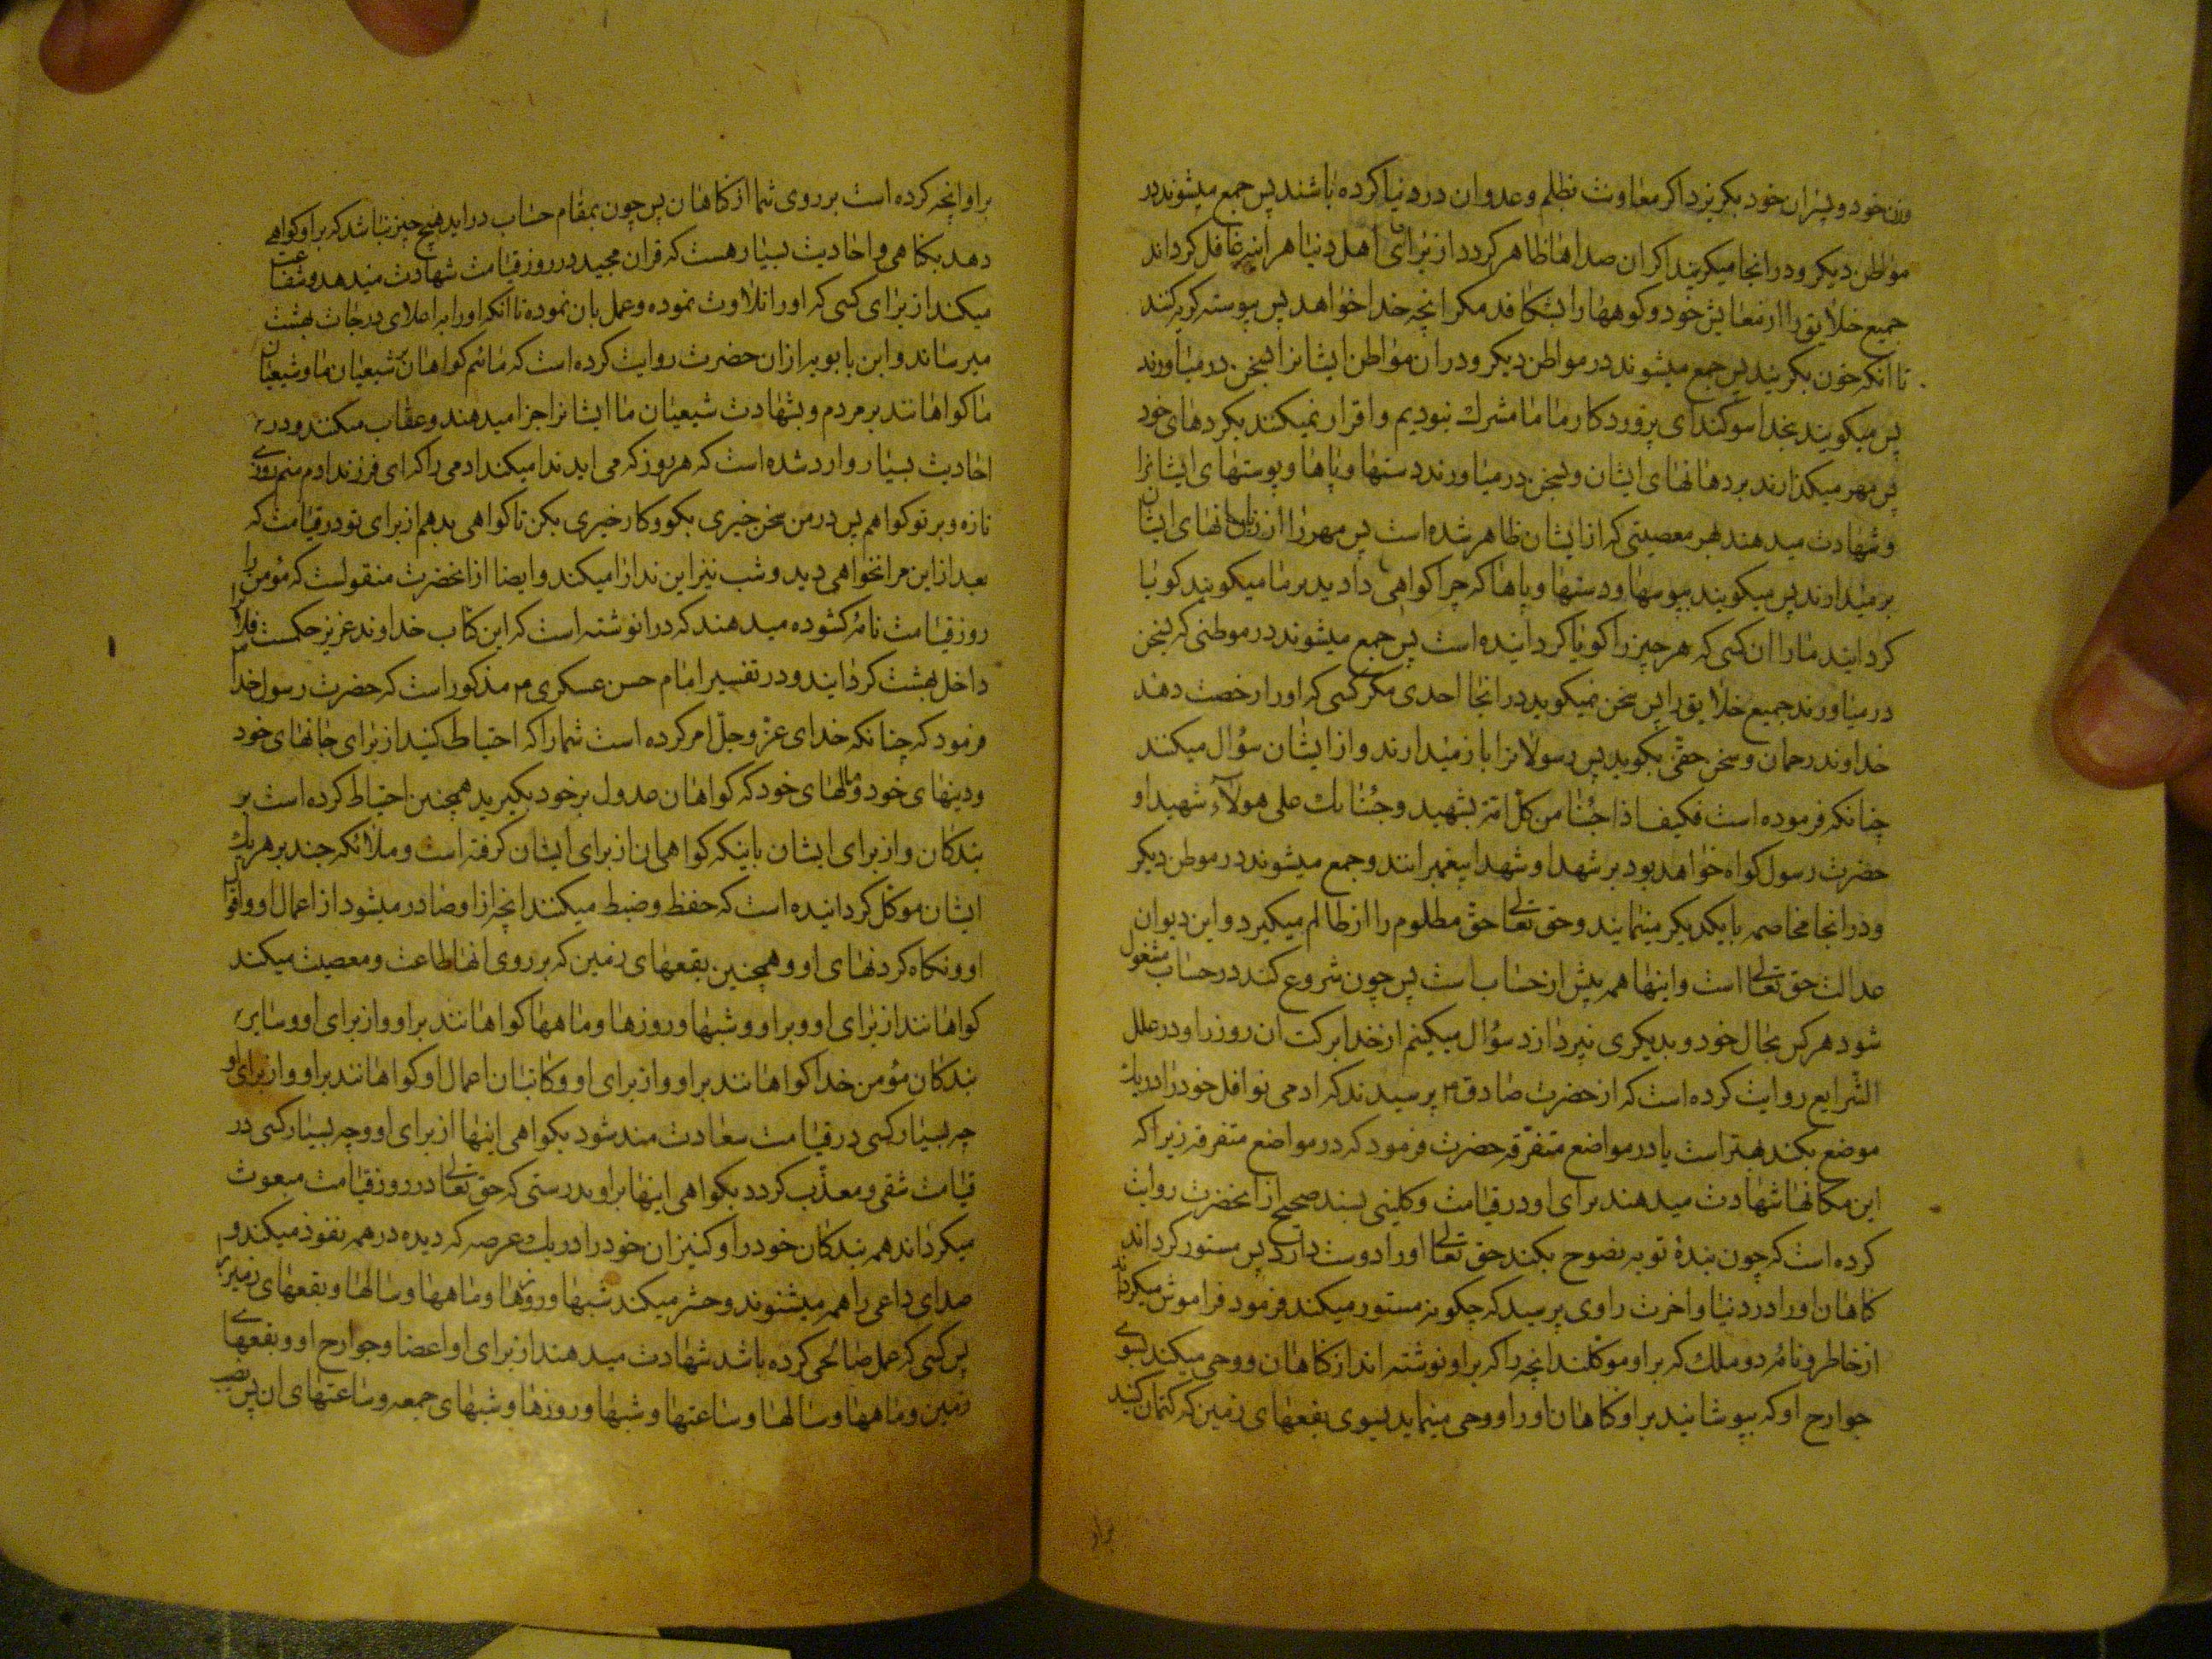 وزن خود و پسران خود بکریزد اکر معاونت بظلم و عدوان در دنیا کرده باشند پس جمع میشوند در
موطن دیکر و در انجا میکریند اکر ان صداها ظاهر کردد از برای اهل دنیا هر اینه غافل کرداند
جمیع خلایق را از معایش خود و کوهها را بشکافد مکر انچه خدا خواهد پس پیوسته کریه کنند
تا انکه خون بکریند پس جمع میشوند در مواطن دیکر و در ان مواطن ایشانرا بسخن در میاورند
پس میکویند بخدا سوکند ای پروردکار ما ما مشرک نبودیم و اقرار نمیکنند بکردهای خود
پس مهر میکذارند بر دهانهای ایشان و بسخن در میاورند دستها و پاها و پوستهای ایشانرا
و شهادت میدهند هر معصیتی که از ایشان ظاهر شده است پس مهر را از زبانهای ایشان
بر میدارند پس میکویند بپوستها و دستها و پاها که چرا کواهی دادید بر ما میکویند کویا
کردانید ما را ان کسی که هر چیز را کویا کردانیده است پس جمع میشوند در موطنی که بسخن
در میاورند جمیع خلایق را پس سخن نمیکوید در انجا احدی مکر کسی که او را رخصت دهند
خداوند رحمان و سخن حقی بکوید پس رسولانرا باز میدارند و از ایشان سؤال میکنند
چنانکه فرموده است فکیف اذا جئنا من کلّ امّة بشهید و جئنا بک علی هولآء شهیدا و
حضرت رسول کواه خواهد بود بر شهدا و شهدا پیغمبرانند و جمع میشوند در موطن دیکر
و در انجا مخاصمه با یکدیکر مینمایند و حق تعالی حقّ مظلوم را از ظالم میکیرد و این دیوان
عدالت حق تعالی است و اینها همه پیش از حساب است پس چون شروع کنند در حساب مشغول
شود هر کس بحال خود و بدیکری نپردازد سؤال میکنیم از خدا برکت ان روز را و در علل
الشّرایع روایت کرده است که از حضرت صادق م پرسیدند که ادمی نوافل خود را در یک
موضع بکند بهتر است یا در مواضع متفرّقه حضرت فرمود که در مواضع متفرقه زیرا که
این مکانها شهادت میدهند برای او در قیامت و کلینی بسند صحیح از انحضرت روایت
کرده است که چون بندۀ توبه نصوح بکند حق تعالی او را دوست دارد پس مستور کرداند
کاهان او را در دنیا و اخرت راوی پرسید که چکونه مستور میکند فرمود فراموش میکرداند
از خاطر و نامۀ دو ملک که بر او موکلند انچه را که بر او نوشته اند از کاهان و وحی میکند بسوی
جوارح او که بپوشانید بر او کاهان او را و وحی مینماید بسوی بقعهای زمین که کتمان کنید
بر او
بر او انچه کرده است بر روی شما از کاهان پس چون بمقام حساب در اید هیچ چیز نباشد که بر او کواهی
دهد بکاهی و احادیث بسیار هست که قران مجید در روز قیامت شهادت میدهد و شفاعت
میکند از برای کسی که او را تلاوت نموده و عمل بان نموده تا انکه او را به اعلای درجات بهشت
میرساند و ابن بابویه از ان حضرت روایت کرده است که مائیم کواهان شیعیان ما و شیعیان
ما کواهانند بر مردم و بشهادت شیعیان ما ایشانرا جزا میدهند و عقاب میکنند و در
احادیث بسیار وارد شده است که هر روز که می اید ندا میکند ادمی را که ای فرزند ادم منم روزی
تازه و بر تو کواهم پس در من سخن خیری بکو و کار خیری بکن تا کواهی بدهم از برای تو در قیامت که
بعد از این مرا نخواهی دید و شب نیز این ندا را میکند و ایضا از انحضرت منقولست که مؤمن را
روز قیامت نامۀ کشوده میدهند که در ان نوشته است که این کتاب خداوند عزیز حکست فلانرا
داخل بهشت کردانید و در تفسیر امام حسن عسکری م مذکور است که حضرت رسول خدا
فرمود که چنانکه خدای عزّ و جلّ امر کرده است شما را که احتیاط کنید از برای جانهای خود
و دینهای خود و مالهای خود که کواهان عدول بر خود بکیرید همچنین احتیاط کرده است بر
بندکان و از برای ایشان باینکه کواهی ان از برای ایشان کرفته است و ملائکه چند بر هر یک
ایشان موکّل کردانیده است که حفظ و ضبط میکنند انچه از او صادر میشود از اعمال او و اقوال
او و نکاه کردنهای او و همچنین بقعهای زمین که بر روی انها طاعت و معصیت میکند
کواهانند از برای او و بر او و شبها و روزها و ماهها کواهانند بر او و از برای او و سایر
بندکان مؤمن خدا کواهانند بر او و از برای او و کاتبان اعمال او کواهانند بر او و از برای او
چه بسیار کسی در قیامت سعادت مند شود بکواهی اینها از برای او و چه بسیار کسی در
قیامت شقی و معذّب کردد بکواهی اینها بر او بدرستی که حق تعالی در روز قیامت مبعوث
میکرداند همه بندکان خود را و کنیزان خود را در یک عرصه که دیده در همه نفوذ میکند و
صدای داعی را همه میشنوند و حشر میکند شبها و روزها و ماهها و سالها و بقعهای زمین را
پس کسی که عمل صالحی کرده باشد شهادت میدهند از برای او اعضا و جوارح او و بقعهای
زمین و ماهها و سالها و ساعتها و شبها و روزها و شبهای جمعه و ساعتهای ان پس